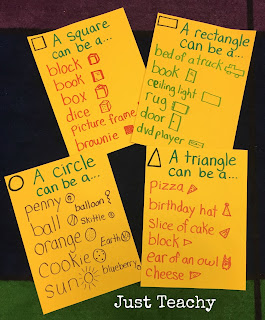 A square
can be a...
block
book
box
dice
picture frame
brownie
A rectangle
can be a...
bed of a truck
book
ceiling light
rug
door
dvd player
A circle
can be a...
penny balloon
ball Skittle
orange Earth
cookie
sun blueberry
A triangle
can be a...
pizza
birthday hat
slice of cake
block
ear of an owl
cheese
Just Teachy